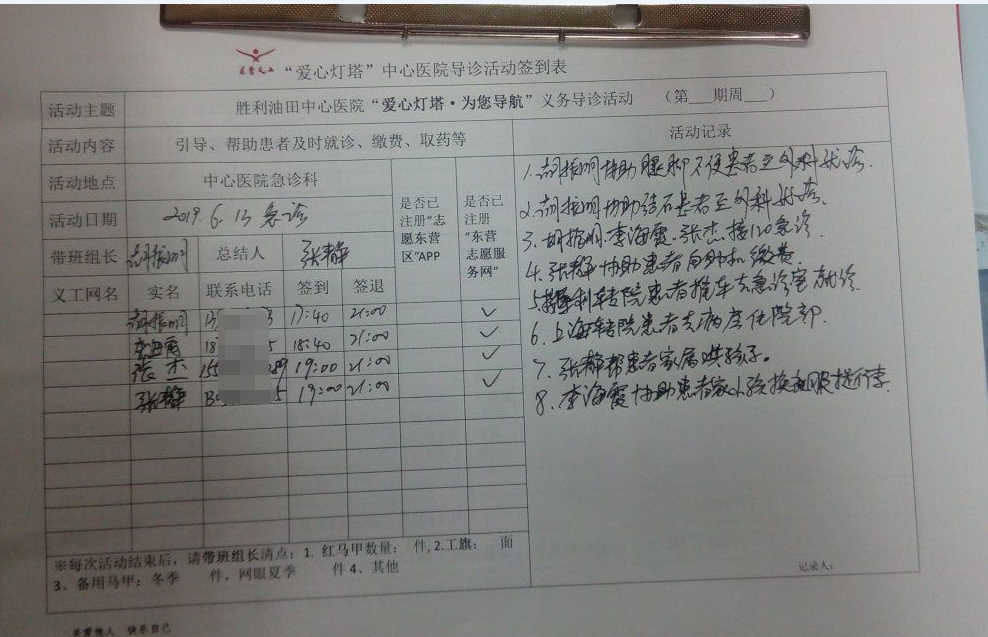 东营义工 “爱心灯塔”中心医院导诊活动签到表
活动主题 胜利油田中心医院“爱心灯塔·为您导航”义务导诊活动 (第___期周___)
活动内容 引导、帮助患者及时就诊、缴费、取药等 活动记录
活动地点 中心医院急诊科
是否已注册“志愿东营区“APP
是否已注册“东营志愿服务网”
活动日期 2019.6.13 急诊
带班组长 胡振明 总结人 张静
义工网名 实名 联系电话 签到 签退
胡振明 17:40 21:00 ✓
李海霞 18:40 21:00 ✓
张杰 19:00 21:00 ✓
张静 19:00 21:00 ✓
1.胡振明协助腿脚不便患者至外科就诊.
2.胡振明协助结石患者至外科就诊.
3.胡振明.李海霞.张杰接120急诊
4.张静协助患者自助机缴费.
5. 利转院患者推车去急诊室就诊.
6.上海转院患者去病房住院部.
7.张静帮患者家属哄孩子。
8.李海霞协助患者家 提行李.
※每次活动结束后，请带班组长清点：1. 红马甲数量： 件, 2.工旗： 面
3、备用马甲：冬季 件，网眼夏季 件 4、其他
记录人：
关爱他人 快乐自己